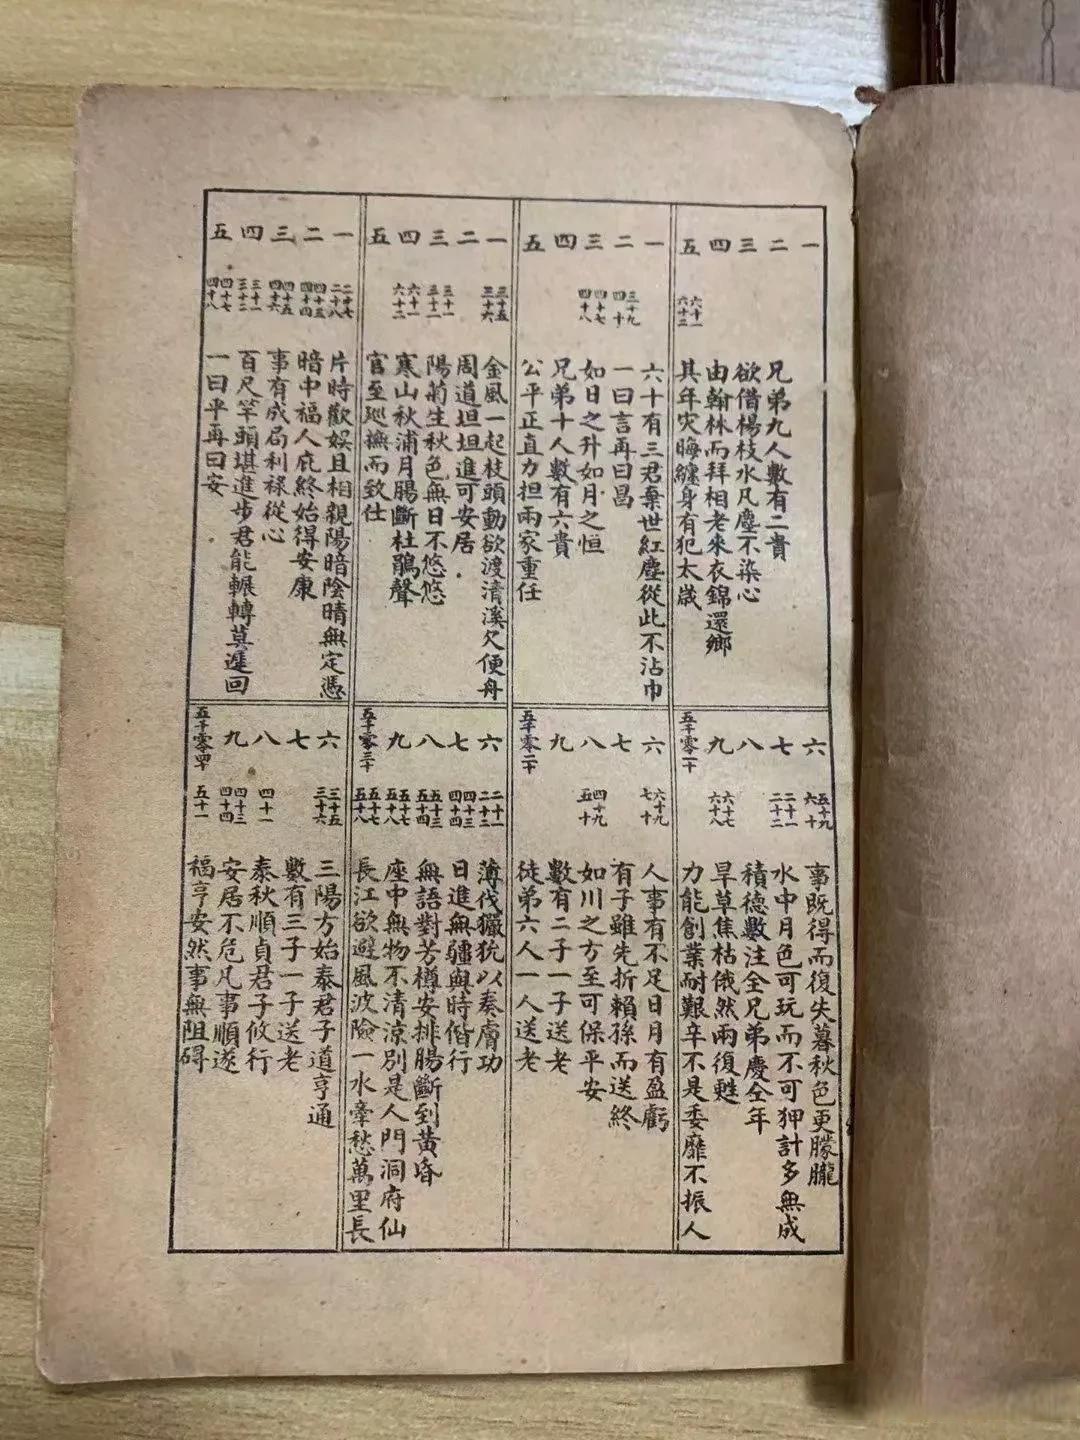 一
二 兄弟九人數有二貴
三 欲借楊枝水凡塵不染心
四 由翰林而拜相老來衣錦還鄉
五 六十一 六十二 其年灾晦纏身有犯太歲
六 五十九 六十 事既得而復失暮秋色更朦朧
七 二十一 二十二 水中月色可玩而不可狎計多無成
八 積德數注全兄弟慶全年
九 六十七 六十八 旱草焦枯俄然雨復甦
五千零一十 力能創業耐艱辛不是委靡不振人
一 六十有三君棄世紅塵從此不沾巾
二 三十九 四十 一曰言再曰昌
三 四十七 四十八 如日之升如月之恒
四 兄弟十人數有六貴
五 公平正直力担兩家重任
六 六十九 七十 人事有不足日月有盈虧
七 有子雖先折賴孫而送終
八 四十九 五十 如川之方至可保平安
九 數有二子一子送老
五千零二十 徒弟六人一人送老
一 三十五 三十六 金風一起枝頭動欲渡清溪欠便舟
二 周道坦坦進可安居
三 三十一 三十二 陽菊生秋色無日不悠悠
四 六十一 六十二 寒山秋浦月腸斷杜鵑聲
五 官至廵撫而致仕
六 二十一 二十二 薄伐玁狁以奏膚功
七 四十三 四十四 日進無疆與時偕行
八 五十三 五十四 無語對芳樽安排腸斷到黃昏
九 五十七 五十八 座中無物不清涼別是人門洞府仙
五千零三十 五十七 五十八 長江欲避風波險一水牽愁萬里長
一 二十七 二十八 片時歡娛且相親陽暗陰晴無定憑
二 四十三 四十四 暗中福人庇終始得安康
三 四十五 四十六 事有成局利祿從心
四 三十一 三十二 百尺竿頭堪進步君能輾轉莫遲回
五 四十七 四十八 一曰平再曰安
六 三十五 三十六 三陽方始泰君子道亨通
七 數有三子一子送老
八 四十一 泰秋順貞君子攸行
九 四十三 四十四 安居不危凡事順遂
五千零四十 五十一 福亨安然事無阻碍